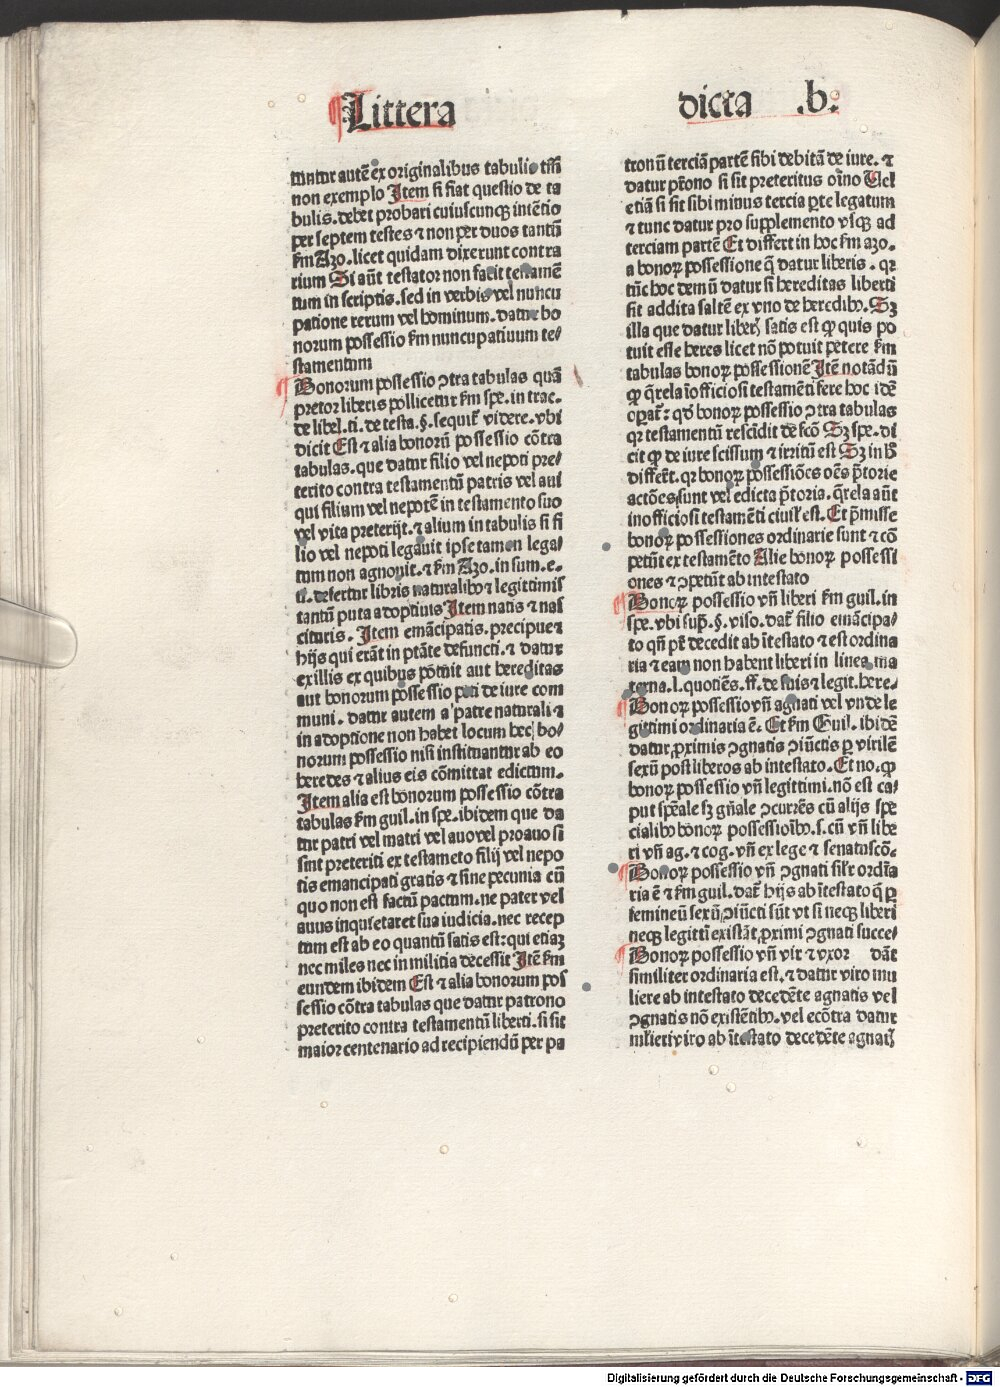 Littera dicta .b.
tuntur autē ex originalibus tabulis tm̄
non exemplo Item si fiat questio de ta
bulis. debet probari cuiuscunqꝫ intētio
per septem testes ⁊ non per duos tantū
ẜm Azo. licet quidam dixerunt contra
rium Si aūt testator non facit testamē
tum in scriptis. sed in verbis vel nuncu
patione rerum vel hominum. datur bo
norum possessio ẜm nuncupatiuum te⸗
stamentum
Bonorum possessio ꝯtra tabulas quā
pretor liberis pollicetur ẜm spe. in trac.
de libel. ti. de testa. §. sequit̄ videre. vbi
dicit Est ⁊ alia bonorū possessio cōtra
tabulas. que datur filio vel nepoti pre⸗
terito contra testamentū patris vel aui
qui filium vel nepotē in testamento suo
vel vita preterijt. ⁊ alium in tabulis si fi
lio vel nepoti legauit ipse tamen lega⸗
tum non agnouit. ⁊ ẜm Azo. in sum. e.
ti. defertur libris naturalibꝰ ⁊ legittimis
tantū puta adoptiuis Item natis ⁊ nas
cituris. Item emācipatis. precipue ⁊
hijs qui erāt in ptāte defuncti. ⁊ datur
ex illis ex quibus pōtuit aut hereditas
aut bonorum possessio peti de iure com
muni. datur autem a patre naturali ⁊
in adoptione non habet locum hec bo⸗
norum possessio nisi instituantur ab eo
heredes ⁊ alius eis cōmittat edictum.
Item alia est bonorum possessio cōtra
tabulas ẜm guil. in spe. ibidem que da
tur patri vel matri vel auo vel proauo si
sint preteriti ex testameto filij vel nepo
tis emancipati gratis ⁊ sine pecunia cū
quo non est factū pactum. ne pater vel
auus inquietaret sua iudicia. nec recep
tum est ab eo quantū satis est: qui etiaꝫ
nec miles nec in militia decessit Itē ẜm
eundem ibidem Est ⁊ alia bonorum pos
sessio cōtra tabulas que datur patrono
preterito contra testamentū liberti. si sit
maior centenario ad recipiendū per pa
tronū terciā partē sibi debitā de iure. ⁊
datur pr̄ono si sit preteritus oīno Uel
etiā si sit sibi minus tercia ꝑte legatum
⁊ tunc datur pro supplemento vsqꝫ ad
terciam partē Et differt in hoc ẜm azo.
a bonoꝝ possessione q̄ datur liberis. qꝛ
tūc hoc demū datur si hereditas liberti
sit addita saltē ex vno de heredibꝰ. Sꝫ
illa que datur liberꝭ satis est ꝙ quis po
tuit esse heres licet nō potuit petere ẜm
tabulas bonoꝝ possessionē Itē notādū
ꝙ q̄rela īofficiosi testamēti fere hoc idē
opat̄: qꝛ bonoꝝ possessio ꝯtra tabulas
qꝛ testamentū rescīdit de fc̄o Sꝫ spe. di
cit ꝙ de iure scissum ⁊ irritū est Sꝫ in h̄
differt̄. qꝛ bonoꝝ possessiōes oēs p̄torie
actōes sunt vel edicta p̄toria. q̄rela aūt
inofficiosi testamēti ciuil̓ est. Et p̄misse
bonoꝝ possessiones ordinarie sunt ⁊ cō
petūt ex testamēto Alie bonoꝝ possessi
ones ⁊ ꝯpetūt ab intestato
Bonoꝝ possessio vn̄ liberi ẜm guil. in
spe. vbi sup̄. §. viso. dat̄ filio emācipa⸗
to qn̄ pr̄ decedit ab ītestato ⁊ est ordina
ria ⁊ eam non habent liberi in linea ma
terna. l. quotiēs. ff. de suis ⁊ legit. here⸗
Bonoꝝ possessio vn̄ agnati vel vnde le
gittimi ordinaria ē. Et ẜm Guil. ibidē
datur ꝓximis ꝯgnatis ꝯiūctis ꝑ virilē
sexū post liberos ab intestato. Et no. ꝙ
bonoꝝ possessio vn̄ legittimi. nō est ca⸗
put spēale sꝫ gn̄ale ꝯcurrēs cū alijs spe
cialibꝰ bonoꝝ possessioībꝰ. s. cū vn̄ libe
ri vn̄ ag. ⁊ cog. vn̄ ex lege ⁊ senatuscō.
Bonoꝝ possessio vn̄ ꝯgnati sil̓r ordīa
ria ē ⁊ ẜm guil. dat̄ hijs ab ītestato q̄ ꝑ
femineū sexū ꝯiūcti sūt vt si neqꝫ liberi
neqꝫ legittī existāt ꝓximi ꝯgnati succe⸗
Bonoꝝ possessio vn̄ vir ⁊ vxor dāt
similiter ordinaria est. ⁊ datur viro mu
liere ab intestato decedēte agnatis vel
ꝯgnatis nō existētibꝰ. vel ecōtra datur
mlieri viro ab ītestato decedēte agnatꝭ
Digitalisierung gefördert durch die Deutsche Forschungsgemeinschaft - DFG